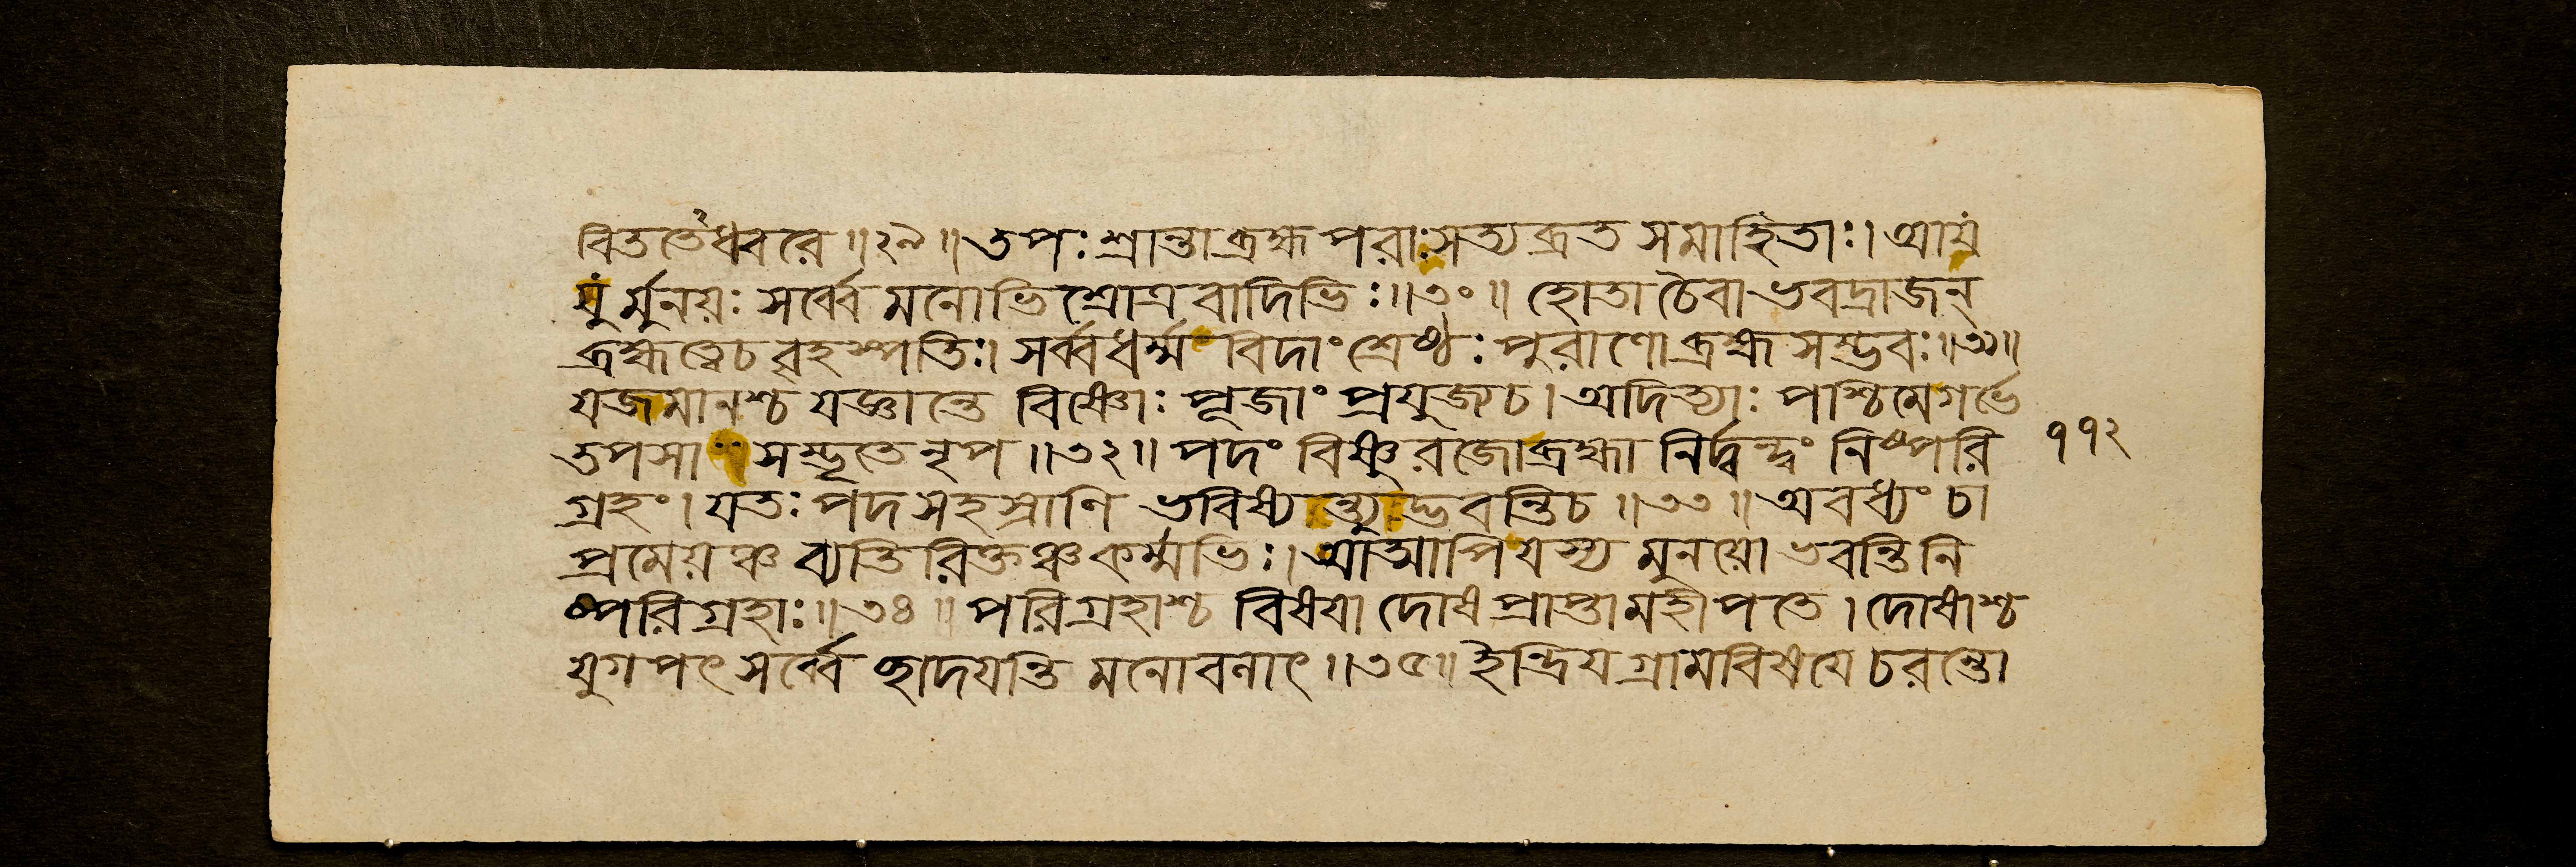 বিততেঽধ্বরে ॥২৯॥ তপঃ শ্রান্তা ব্রহ্ম পরাঃ সত্য ব্রত সমাহিতাঃ। আয
যুর্মুনয়ঃ সর্ব্বে মনোভি শ্রোত্র বাদিভিঃ ॥৩০॥ হোতা চৈবাভবদ্রাজন্
ব্রহ্মত্বেচ বৃহস্পতিঃ। সর্ব্বধর্ম্ম বিদাং শ্রেষ্ঠঃ পুরাণো ব্রহ্ম সম্ভবঃ ॥৩১॥
যজমানশ্চ যজ্ঞান্তে বিষ্ণোঃ পূজাং প্রযুজ্যচ। অদিত্যাঃ পশ্চিমে গর্ভে
তপসা সম্ভূতে নৃপ ॥৩২॥ পদং বিষ্ণুরজো ব্রহ্মা নির্দ্বন্দ্বং নিষ্পরি ১১২
গ্রহং। যতঃ পদ সহস্রাণি ভবিষ্যন্ত্যুদ্ভবন্তিচ ॥৩৩॥ অবধ্যং চা
প্রমেয়ঞ্চ ব্যতিরিক্তঞ্চ কর্ম্মভিঃ। আপি যস্য মুনয়ো ভবন্তি নি
ষ্পরিগ্রহাঃ ॥৩৪॥ পরিগ্রহাশ্চ বিষযা দোষ প্রাপ্তা মহীপতে। দোষাশ্চ
যুগপৎ সর্ব্বে ছাদযন্তি মনোবনাৎ ॥৩৫॥ ইন্দ্রিযগ্রামবিষযে চরন্তো